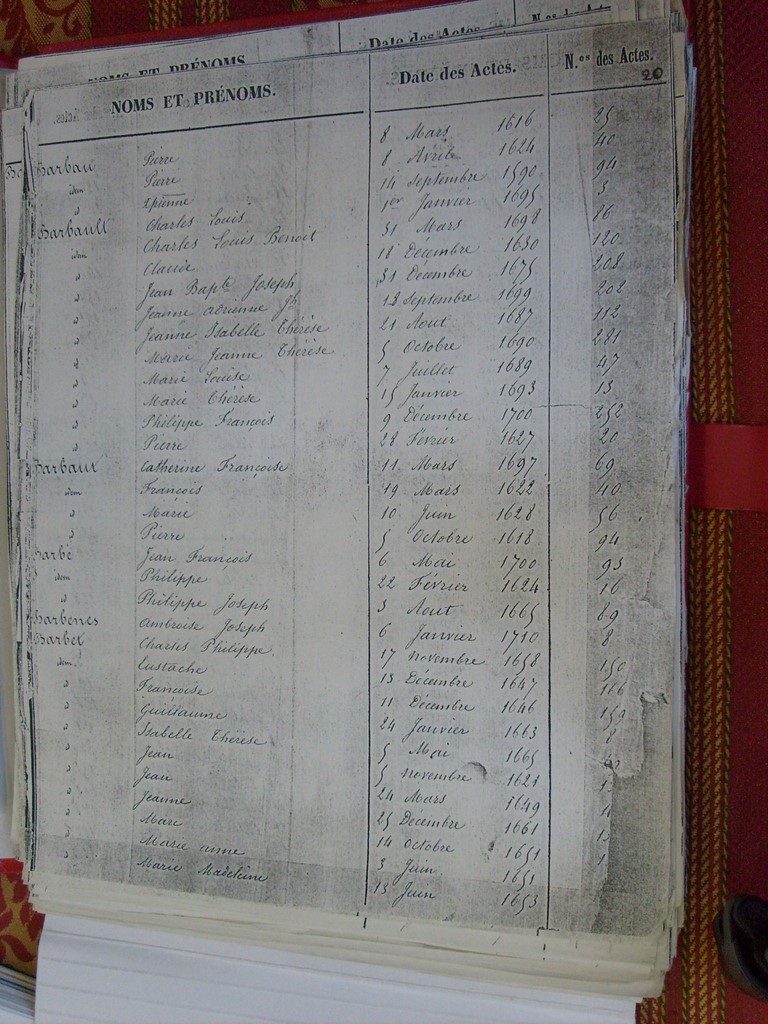 NOMS ET PRÉNOMS. Date des Actes. N.os des Actes.
NOMS ET PRÉNOMS. Date des Actes. N.os des Actes.
20
Barbau Pierre 8 Mars 1616 25
idem Pierre 8 Avril 1624 40
d Etienne 14 Septembre 1590 94
Barbault Charles Louis 1er Janvier 1695 3
idem Charles Louis Benoit 31 Mars 1698 86
d Claude 18 Décembre 1630 120
d Jean Bapte Joseph 31 Décembre 1675 208
d Jeanne adrienne Jh 18 Septembre 1699 202
d Jeanne Isabelle Thérèse 21 Aout 1687 112
d Marie Jeanne Thérèse 5 Octobre 1690 281
d Marie Louise 7 Juillet 1689 47
d Marie Thérèse 15 Janvier 1693 13
d Philippe François 9 Décembre 1700 252
d Pierre 28 Février 1627 20
Barbaut Catherine Françoise 11 Mars 1697 69
idem François 19 Mars 1622 40
d Marie 10 Juin 1628 56
d Pierre 5 Octobre 1618 94
Barbé Jean François 6 Mai 1700 93
idem Philippe 22 Février 1624 16
d Philippe Joseph 3 Aout 1665 89
Barbenes ambroise Joseph 6 Janvier 1710 8
Barbet Charles Philippe 17 novembre 1658 150
idem Eustache 13 Décembre 1647 166
d Françoise 11 Décembre 1646 159
d Guillaume 24 Janvier 1663 8
d Isabelle Thérèse 5 Mai 1665
d Jean 5 novembre 1621
d Jean 24 Mars 1649
d Jeanne 25 Décembre 1661
d Marc 14 octobre 1651
d Marie anne 3 Juin 1651
d Marie Madeleine 13 Juin 1653